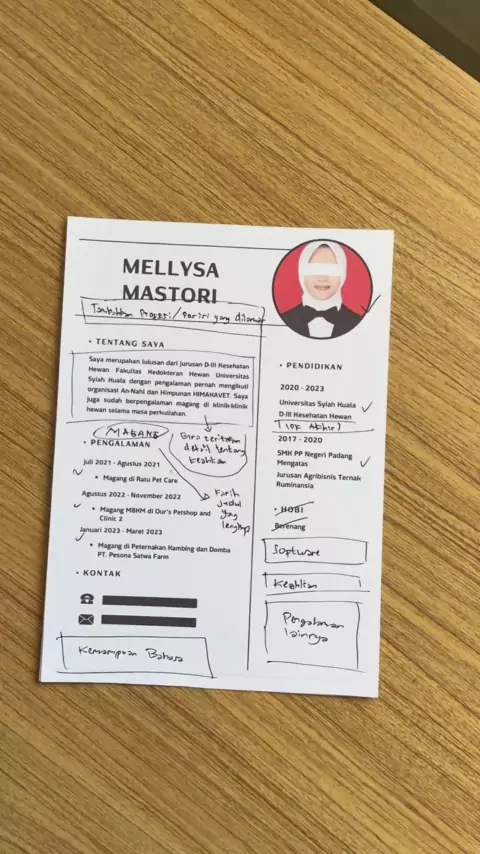 MELLYSA
MASTORI
Tambahkan Profesi/Posisi yang dilamar
• TENTANG SAYA
Saya merupakan lulusan dari jurusan D-III Kesehatan
Hewan Fakultas Kedokteran Hewan Universitas
Syiah Kuala dengan pengalaman pernah mengikuti
organisasi An-Nahl dan Himpunan HIMAHAVET. Saya
juga sudah berpengalaman magang di klinik-klinik
hewan selama masa perkuliahan.
MAGANG
• PENGALAMAN
Bisa ceritakan
detail tentang
keahlian
Juli 2021 - Agustus 2021
• Magang di Ratu Pet Care
Agustus 2022 - November 2022
• Magang MBHM di Our's Petshop and
Clinic 2
Januari 2023 - Maret 2023
• Magang di Peternakan Kambing dan Domba
PT. Pesona Satwa Farm
judul
yang
lengkap
• KONTAK
Kemampuan Bahasa
• PENDIDIKAN
2020 - 2023
Universitas Syiah Kuala
D-III Kesehatan Hewan
(IPK Akhir)
2017 - 2020
SMK PP Negeri Padang
Mengatas
Jurusan Agribisnis Ternak
Ruminansia
• HOBI
Berenang
Software
Keahlian
Pengalaman
lainnya